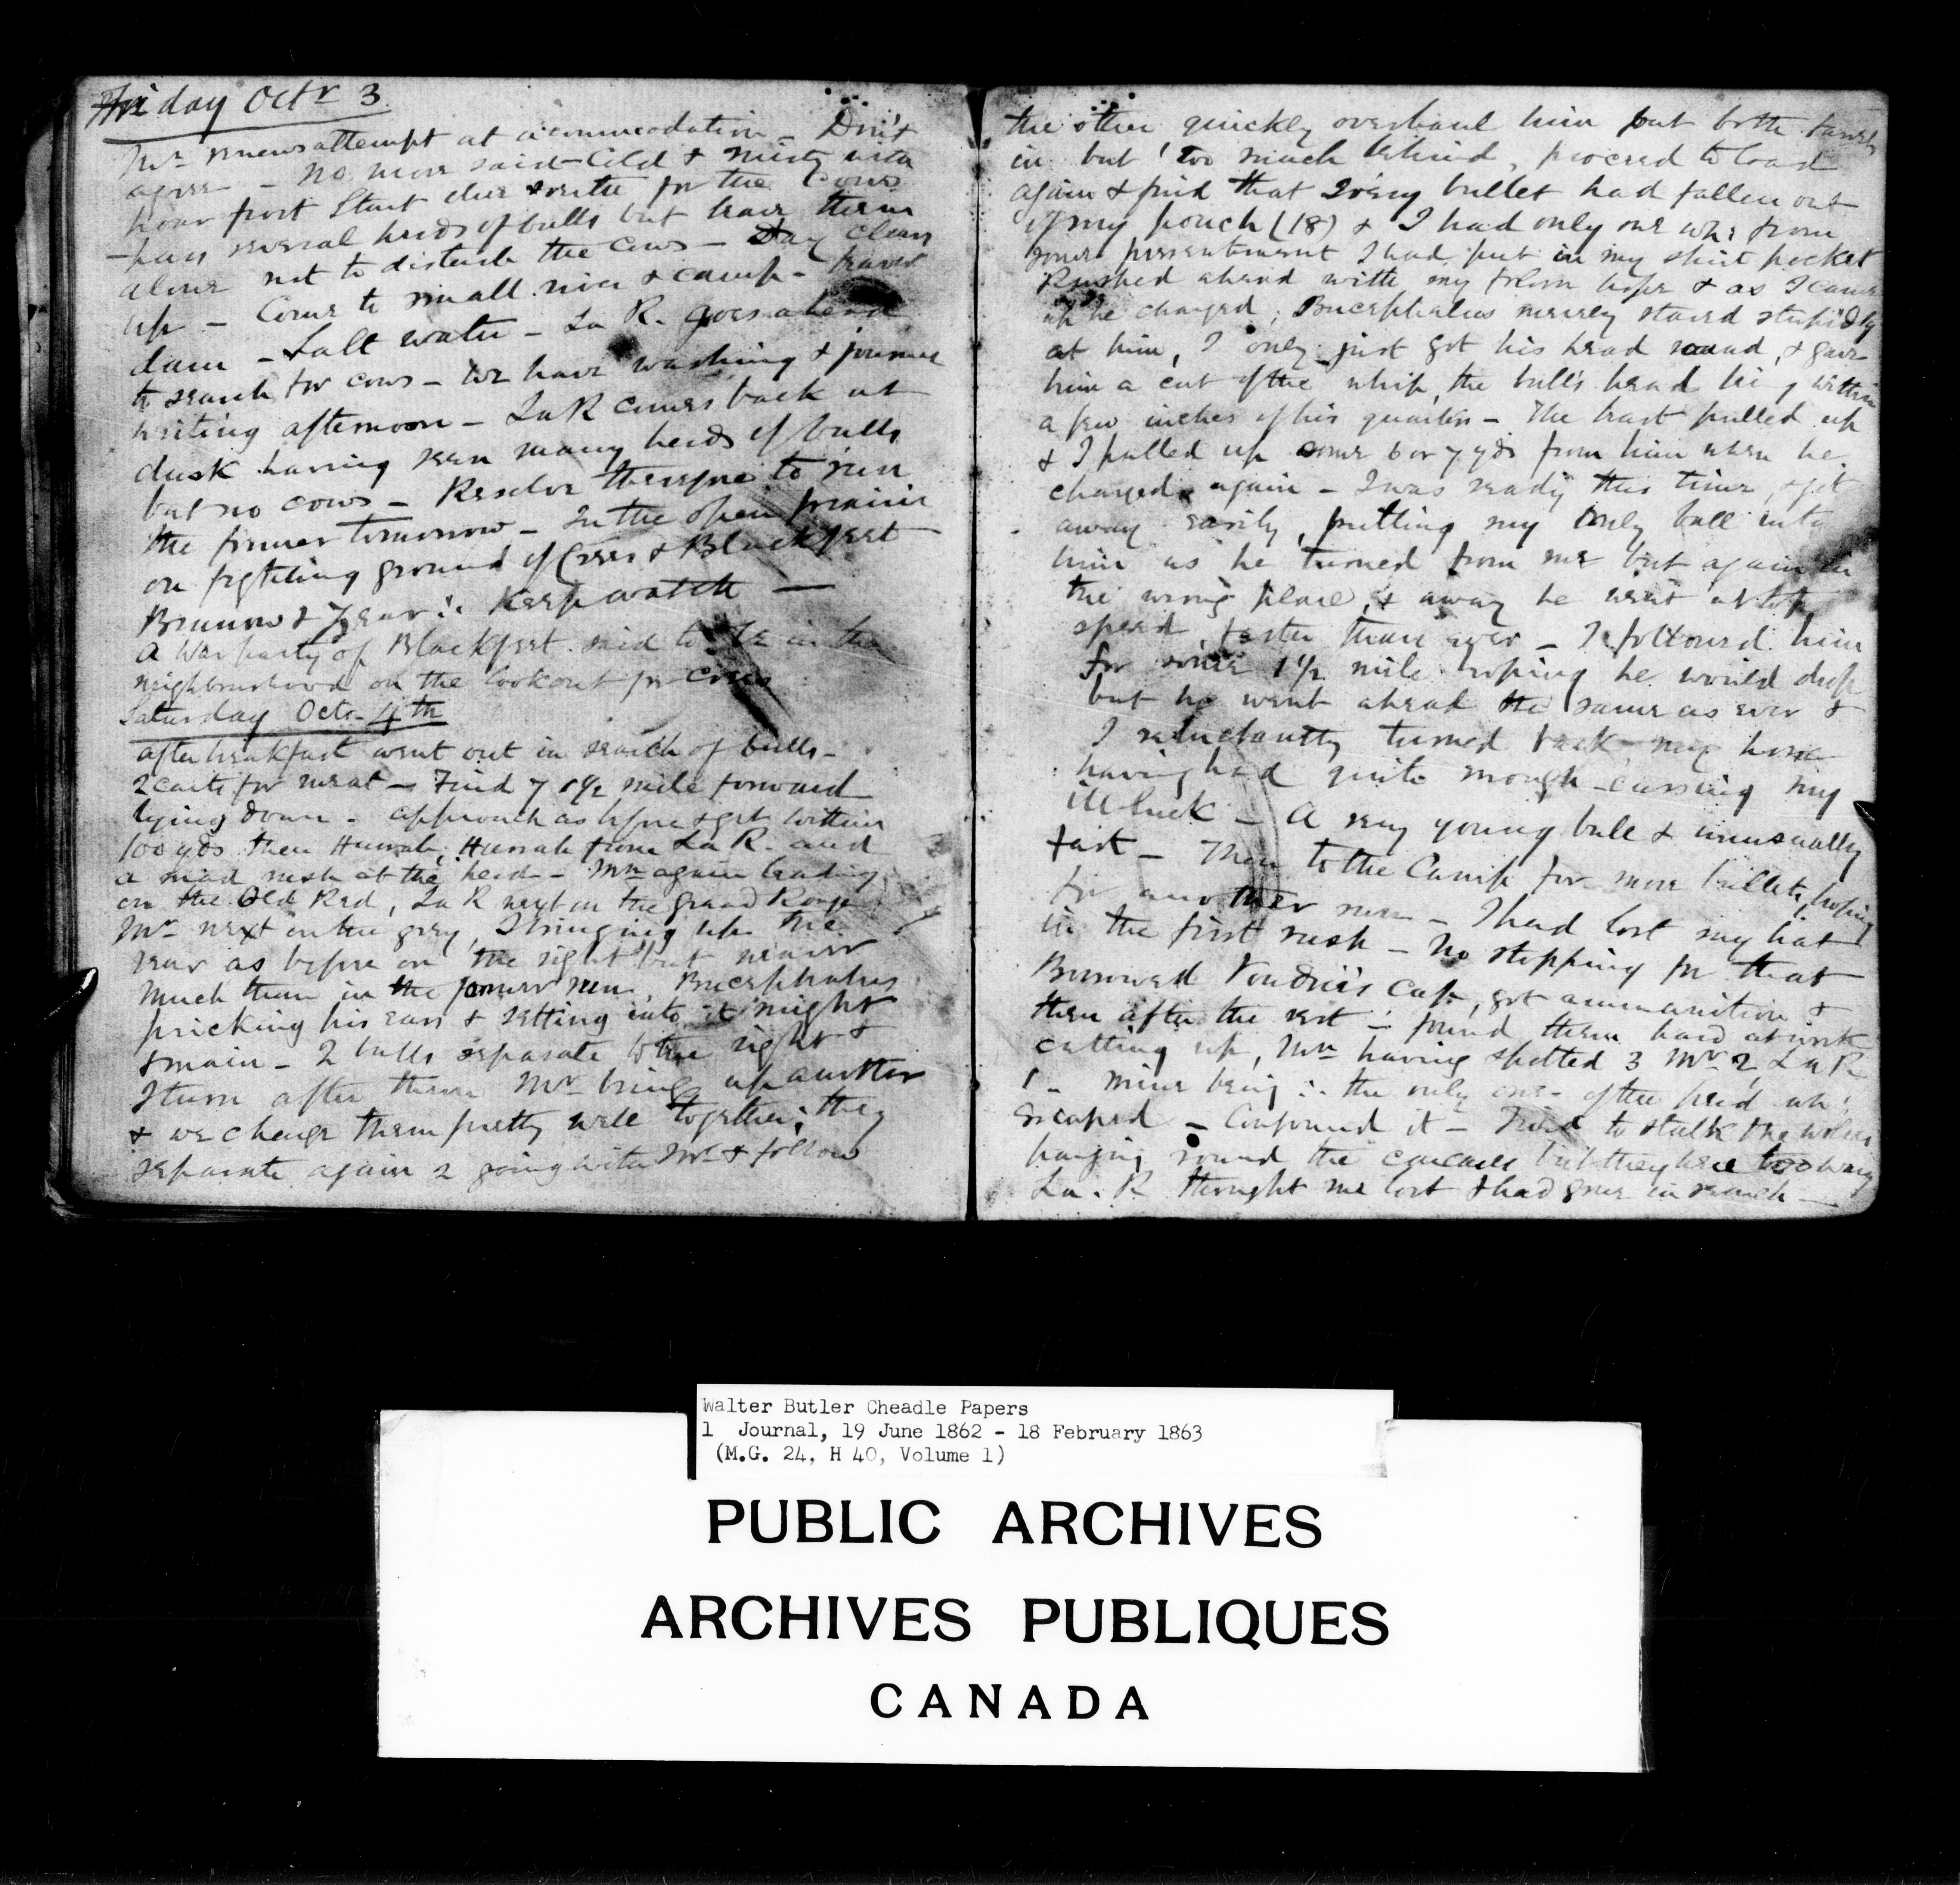 Friday Octr 3
Mr renews attempt at accommodation – Don't
agree – No more said – Cold & misty with
hoar frost Start due south for the Cows
pass several herds of bulls but leave them
alone not to disturb the cows – Day clears
up – Come to small river & camp – beaver
dam – Salt water – La R. goes ahead
to search for cows – We have washing & journal
writing afternoon – La R comes back at
dusk having seen many herds of bulls
but no cows – Resolve therefore to run
the former tomorrow – In the open prairie
on fighting ground of Crees & Blackfeet
∴ Keep watch —
A War party of Blackfeet said to be in the
neighbourhood on the lookout for Crees
Saturday Octr 4th
after breakfast went out in search of bulls –
2 carts for meat – Find 7 1½ mile forward
lying down – approach as before & get within
100 yds then Hurrah, Hurrah from La R. and
a mad rush at the herd – Mn again leading
on the Old Red, La R next on the grand Rouge
Mr next on the grey, I bringing up the
rear as before on the right but nearer
much than in the former run, Bucephalus
pricking his ears & setting into it might &
main – 2 bulls separate to the right &
I turn after them Mr brings up another
& we charge them pretty well together; they
separate again 2 going with Mr & I follow
the other quickly overhaul him put both barrels
in but too much behind, proceed to load
again & find that every bullet had fallen out
of my pouch (18) & I had only one wh: from
some presentiment I had put in my shirt pocket
Rushed ahead with my forlorn hope & as I came
up he charged; Bucephalus merely stared stupidly
at him, I only just got his head round, & gave
him a cut of the whip, the bull's head being within
a few inches of his quarters – The beast pulled up
& I pulled up some 6 or 7 yds from him when he
charged again – I was ready this time, & got
away easily, putting my only ball into
him as he turned from me but again in
the wrong place, & away he went at top
speed, faster than ever – I followed him
for some 1½ mile hoping he would drop
but he went ahead the same as ever &
I reluctantly turned back my horse
having had quite enough cursing my
ill luck – A very young bull & unusually
fast – Then to the Camp for more bullets, hoping
for another run – I had lost my hat
in the first rush – No stopping for that
Borrowed Voudrie's cap, got ammunition &
then after the rest – found them hard at work
cutting up, Mn having shotted 3 Mr 2, La R
1 – mine being ∴ the only one of the herd wh:
escaped – Confound it – Tried to stalk the wolves
hanging round the carcases but they were too wary
La. R thought me lost & had gone in search –
Walter Butler Cheadle Papers
1 Journal, 19 June 1862 - 18 February 1863
(M.G. 24, H 40, Volume 1)
PUBLIC ARCHIVES
ARCHIVES PUBLIQUES
CANADA